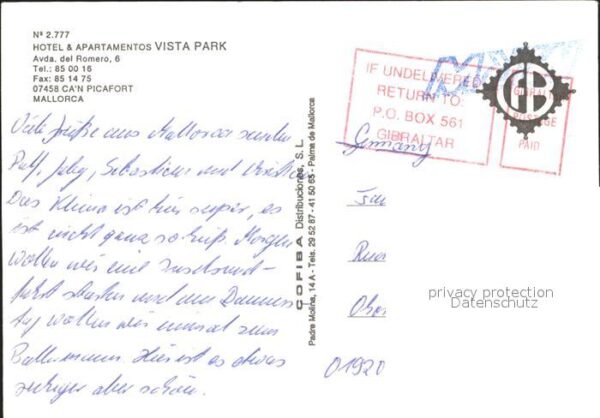 Nº 2.777
HOTEL & APARTAMENTOS VISTA PARK
Avda. del Romero, 6
Tel.: 85 00 16
Fax: 85 14 75
07458 CA'N PICAFORT
MALLORCA
Viele Grüße aus Mallorca senden
Ralf, Sebastian und
Das Klima ist hier super, es
ist nicht ganz so heiß. Morgen
wollen wir eine Inselrund-
fahrt starten und am Donners-
tag wollen wir einmal zum
Ballermann. Hier ist es etwas
ruhiger aber schön.
COFIBA Distribuciones, S.L.
Padre Molina, 14 A - Tels. 29 52 87 - 41 50 65 - Palma de Mallorca
IF UNDELIVERED
RETURN TO:
P.O. BOX 561
GIBRALTAR
GIBRALTAR
POSTAGE
PAID
GB
Germany
privacy protection
Datenschutz
01920